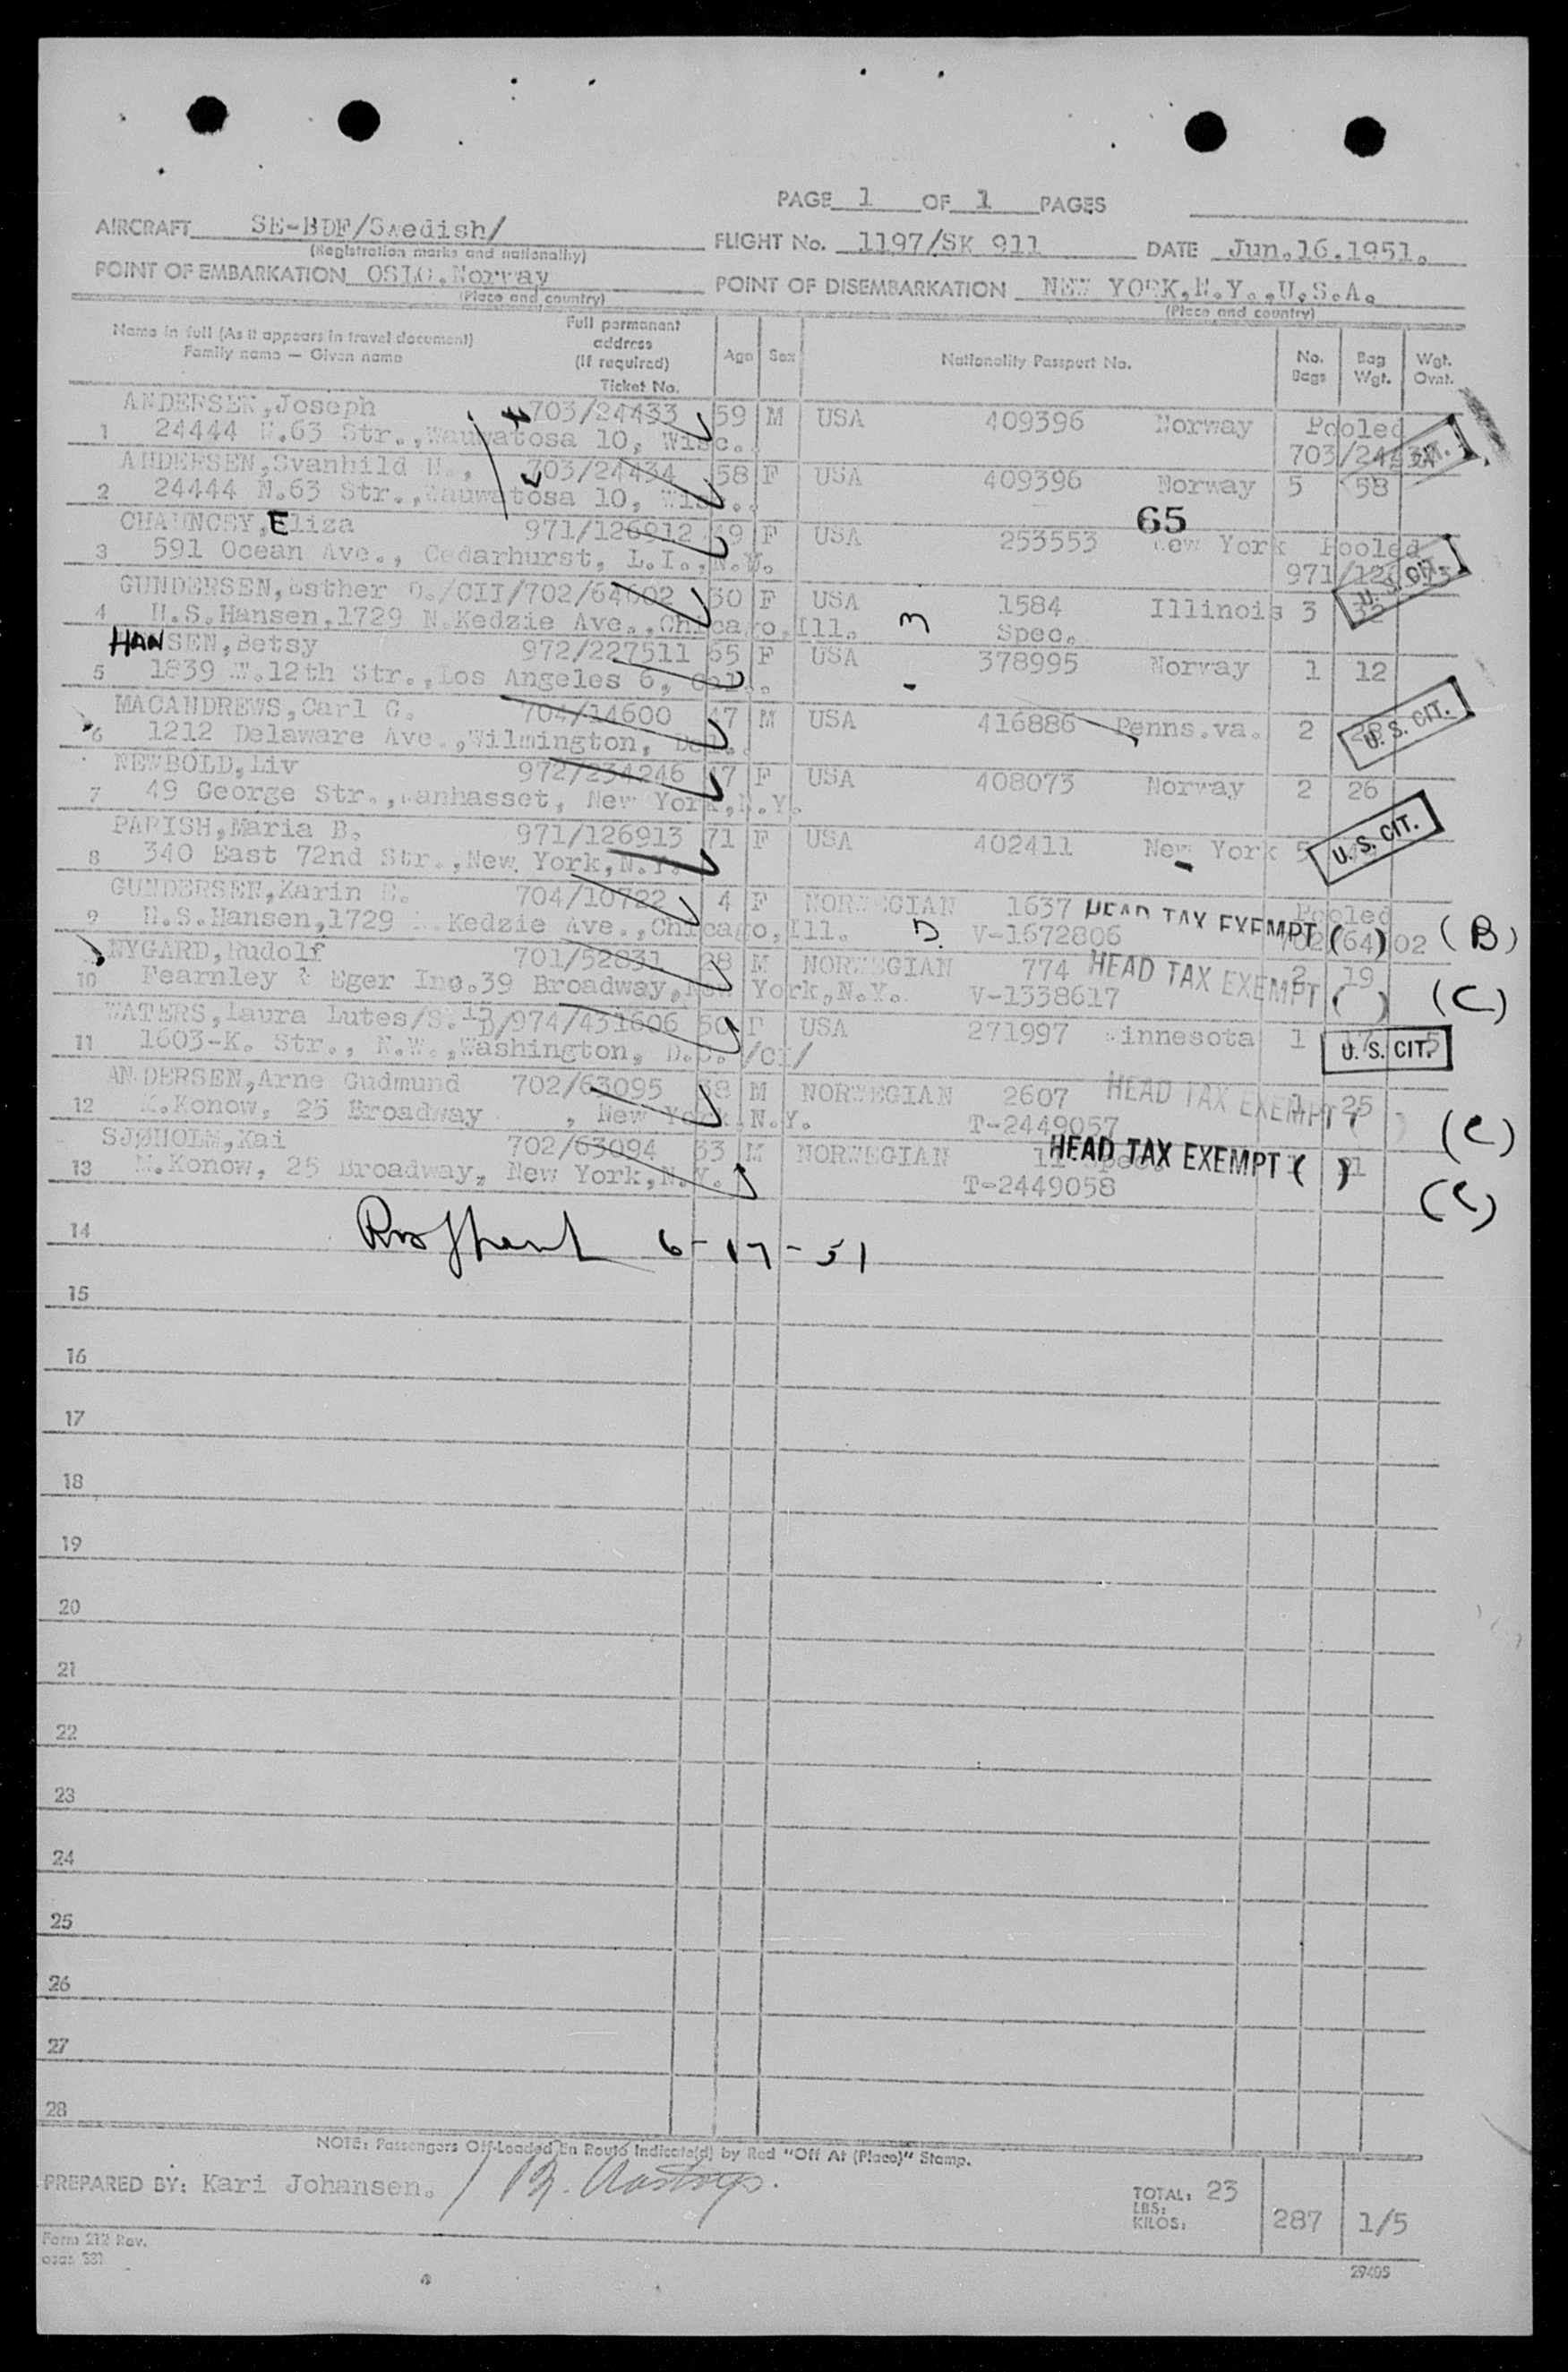 PAGE 1 OF 1 PAGES
AIRCRAFT SE-BDF/Swedish/ FLIGHT No. 1197/SK 911 DATE Jun.16.1951.
(Registration marks and nationality)
POINT OF EMBARKATION OSLO.Norway POINT OF DISEMBARKATION NEW YORK,N.Y.,U.S.A.
(Place and country) (Place and country)
Name in full (As it appears in travel document) Family name — Given name Full permanent address (If required) Ticket No. Age Sex Nationality Passport No. No. Bags Bag Wgt. Wgt. Ovnt.
ANDERSEN,Joseph 703/24433 59 M USA 409396 Norway Pooled
1 24444 N.63 Str.,Wauwatosa 10, Wisc.. 703/24434
ANDERSEN,Svanhild N., 703/24434 58 F USA 409396 Norway 5 58
2 24444 N.63 Str.,Wauwatosa 10, Wisc..
65
CHAUNCEY,Eliza 971/126912 49 F USA 253553 New York Pooled
3 591 Ocean Ave., Cedarhurst, L.I.,N.Y. 971/126913
U. S. CIT.
GUNDERSEN,Esther O./CII/702/64602 30 F USA 1584 Illinois 3
4 H.S.Hansen,1729 N.Kedzie Ave.,Chicago,Ill. Spec.
HANSEN,Betsy 972/227511 65 F USA 378995 Norway 1 12
5 1839 W.12th Str.,Los Angeles 6, Cal..
MACANDREWS,Carl G. 704/14600 47 M USA 416886 Penns.va. 2 U. S. CIT.
6 1212 Delaware Ave.,Wilmington, Del..
NEWBOLD,Liv 972/234246 47 F USA 408073 Norway 2 26
7 49 George Str.,Manhasset, New York,N.Y.
PARISH,Maria B. 971/126913 71 F USA 402411 New York 5 U. S. CIT.
8 340 East 72nd Str.,New York,N.Y.
GUNDERSEN,Karin E. 704/10722 4 F NORWEGIAN 1637 HEAD TAX EXEMPT Pooled
9 H.S.Hansen,1729 N.Kedzie Ave.,Chicago,Ill. V-1672806 702(64)02 (B)
NYGARD,Rudolf 701/52831 28 M NORWEGIAN 774 HEAD TAX EXEMPT ( ) 2 19
10 Fearnley & Eger Inc.39 Broadway,New York,N.Y. V-1338617 (C)
WATERS,Laura Lutes/S.13D/974/431606 50 F USA 271997 Minnesota 1 17 5
11 1603-K. Str., N.W.,Washington, D.C. /CI/ U. S. CIT.
ANDERSEN,Arne Gudmund 702/63095 38 M NORWEGIAN 2607 HEAD TAX EXEMPT ( ) 1 25
12 M.Konow, 25 Broadway , New York,N.Y. T-2449057 (C)
SJØHOLM,Kai 702/63094 33 M NORWEGIAN 11 Spec. HEAD TAX EXEMPT ( ) 21
13 M.Konow, 25 Broadway, New York,N.Y. T-2449058 (C)
14 6-17-51
15
16
17
18
19
20
21
22
23
24
25
26
27
28
NOTE: Passengers Off-Loaded En Route Indicate(d) by Red "Off At (Place)" Stamp.
PREPARED BY: Kari Johansen. /
TOTAL: 23
LBS:
KILOS: 287 1/5
Form 212 Rev.
osat 331
29405